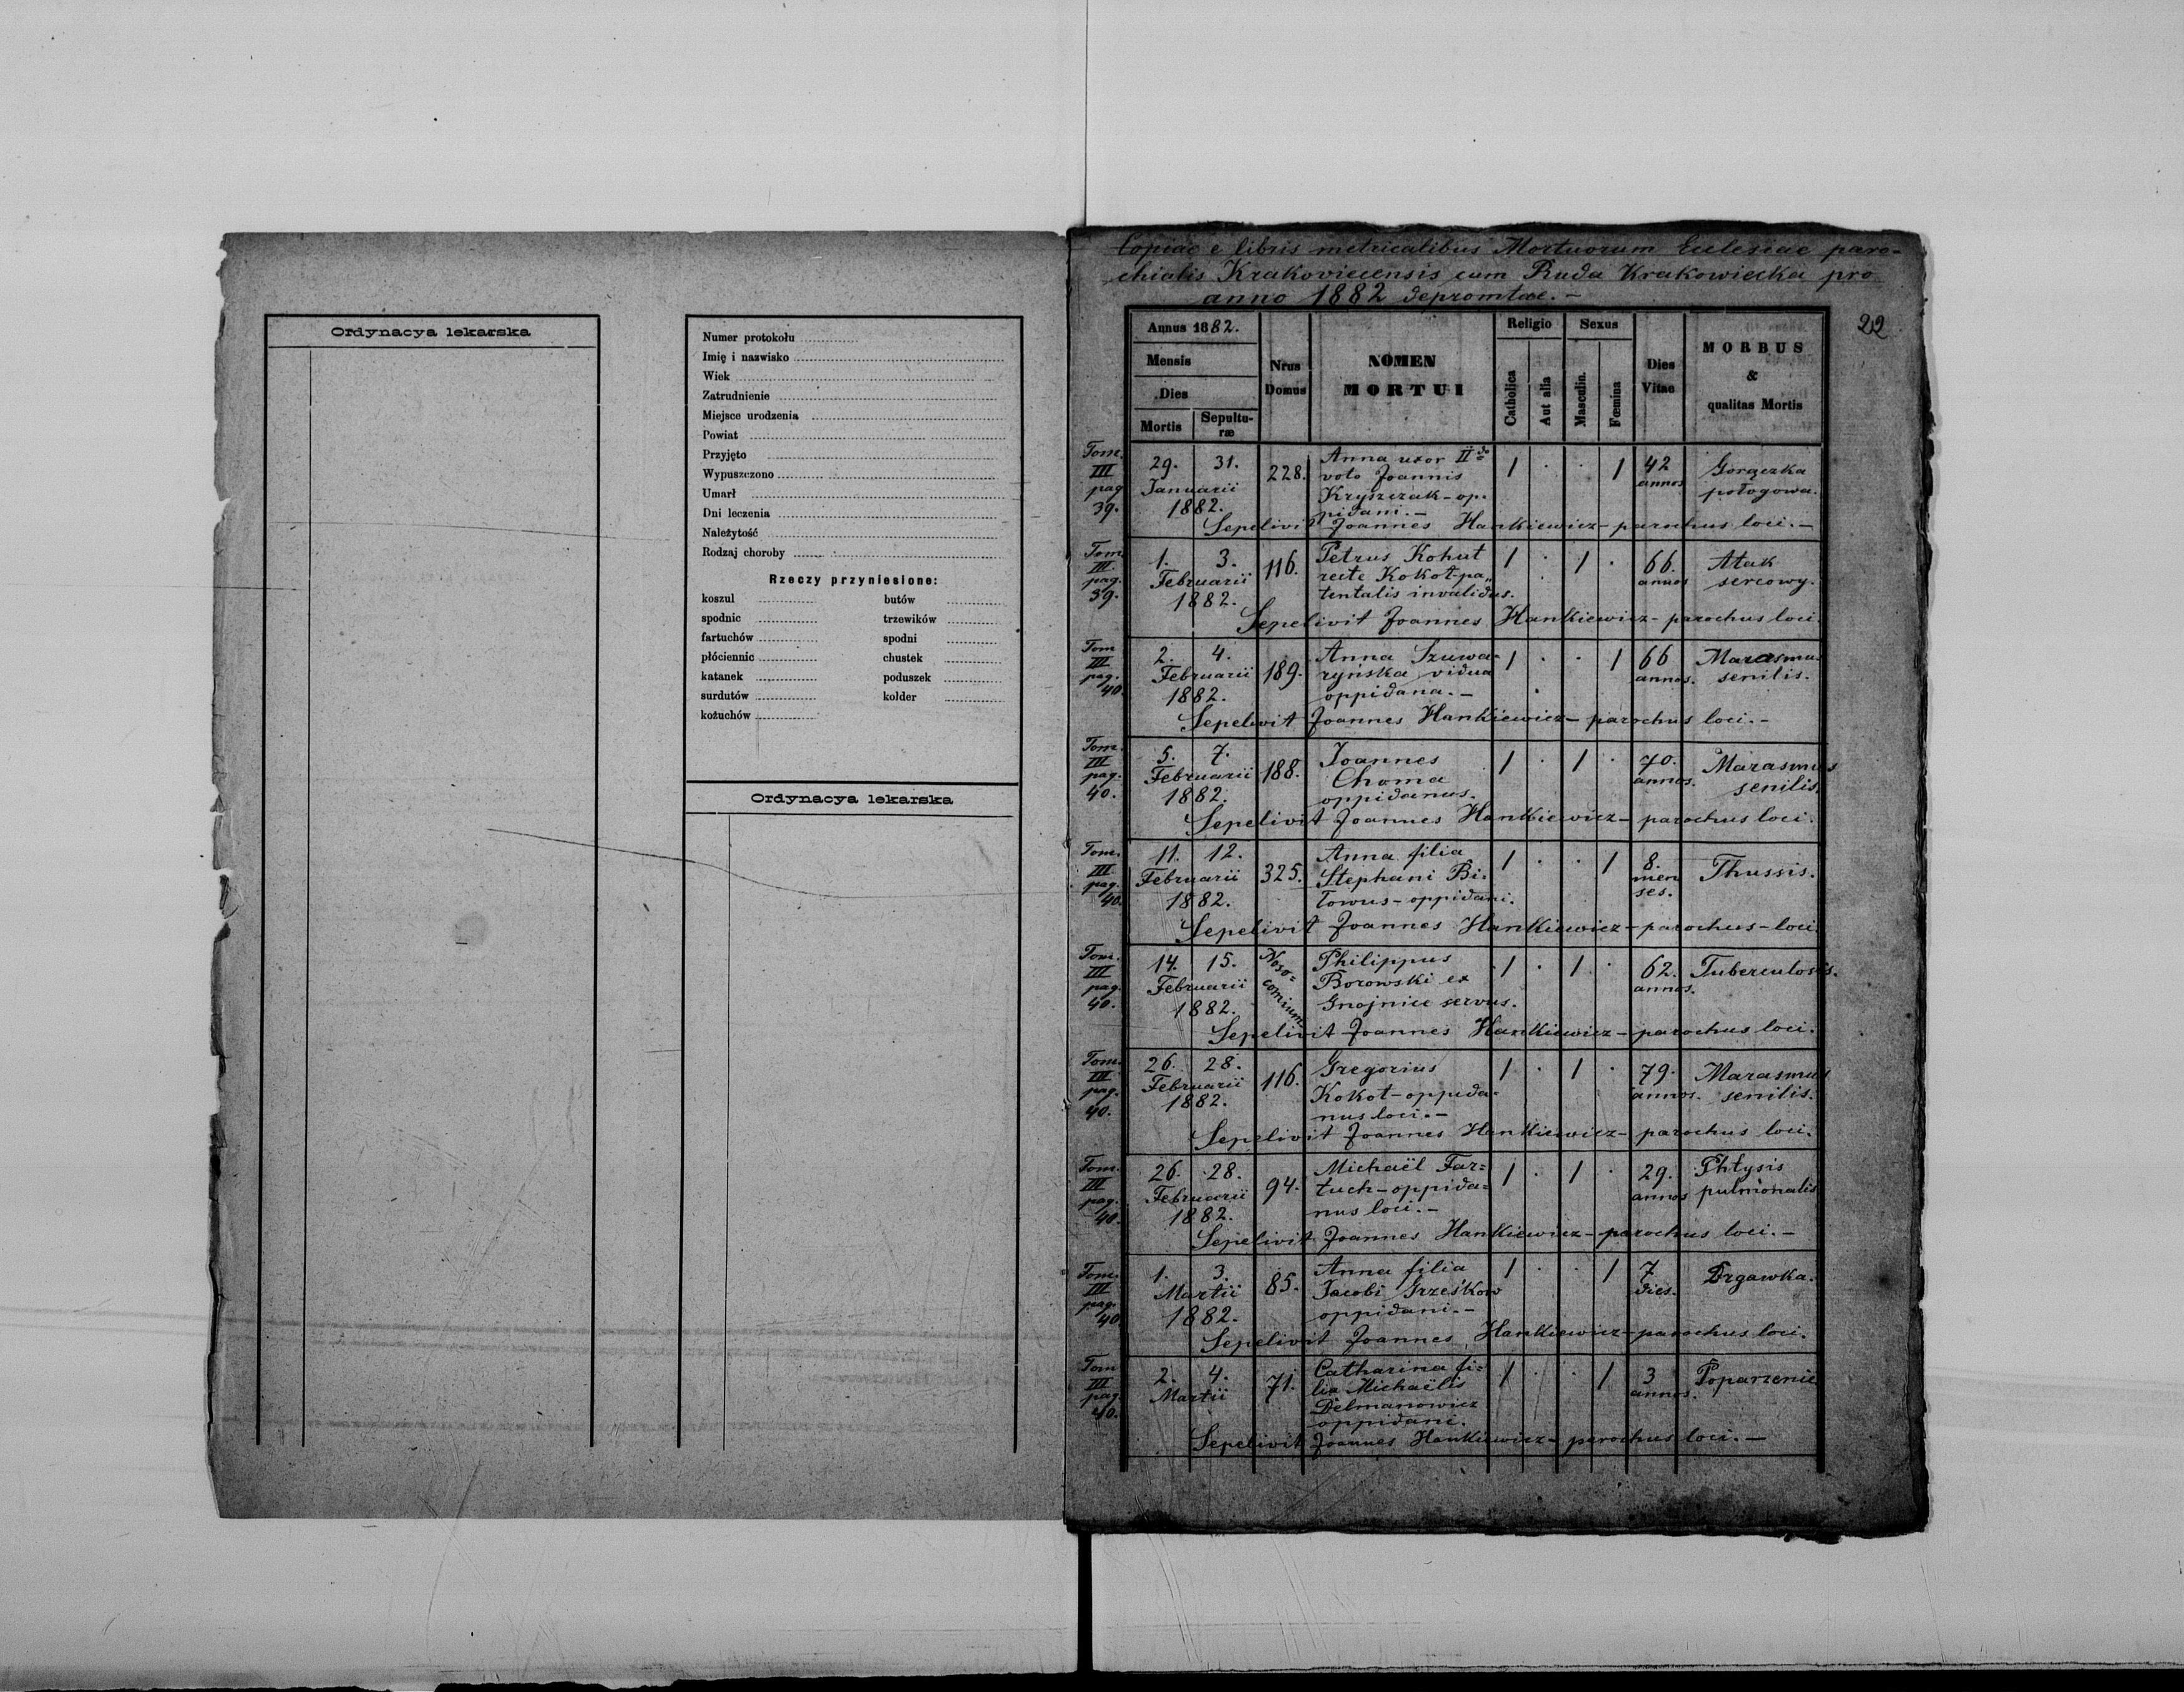 Ordynacya lekarska
Numer protokołu
Imię i nazwisko
Wiek
Zatrudnienie
Miejsce urodzenia
Powiat
Przyjęto
Wypuszczono
Umarł
Dni leczenia
Należytość
Rodzaj choroby
Rzeczy przyniesione:
koszul butów
spodnic trzewików
fartuchów spodni
płóciennic chustek
katanek poduszek
surdutów kołder
kożuchów
Ordynacya lekarska
Copiae e libris metricalibus Mortuorum Eclesiae paro-
chialis Krakoviecensis cum Ruda Krakowiecka pro
anno 1882 depromtae. –
22
Annus 1882.
Mensis
Dies
Mortis
Sepultu-
ræ
Nrus
Domus
NOMEN
MORTUI
Religio
Catholica
Aut alia
Sexus
Masculin.
Fœmina
Dies
Vitae
MORBUS
&
qualitas Mortis
Tom. III pag 39.
29. 31. Januarii 1882.
228.
Anna uxor II do
voto Joannis
Kryszczak - op-
pidani. –
1 . . 1
42 annos
Gorączka
połogowa.
Sepelivit Joannes Hankiewicz – parochus loci. –
Tom. III. pag. 39.
1. 3. Februarii 1882.
116.
Petrus Kohut
recte Kokot - pa„
tentalis invalidus.
1 . 1 .
66. annos
Atak
sercowy.
Sepelivit Joannes Hankiewicz – parochus loci.
Tom III pag. 40.
2. 4. Februarii 1882.
189.
Anna Szuwa-
ryńska vidua
oppidana. –
1 . . 1
66 annos.
Marasmus
senilis.
Sepelivit Joannes Hankiewicz – parochus loci. –
Tom. III pag. 40.
5. 7. Februarii 1882.
188.
Joannes
Choma
oppidanus.
1 . 1 .
70. annos.
Marasmus
senilis.
Sepelivit Joannes Hankiewicz – parochus loci.
Tom. III pag. 40.
11. 12. Februarii 1882.
325.
Anna filia
Stephani Bi-
towus - oppidani.
1 . . 1
8. men
ses.
Thussis.
Sepelivit Joannes Hankiewicz – parochus - loci.
Tom. III pag. 40.
14. 15. Februarii 1882.
Noso-
comium
Philippus
Borowski ex
Gnojnice servus.
1 . 1 .
62. annos.
Tuberculosis.
Sepelivit Joannes Hankiewicz – parochus loci.
Tom. III pag. 40.
26. 28. Februarii 1882.
116.
Gregorius
Kokot - oppida-
nus loci. –
1 . 1 .
79. annos.
Marasmus
senilis.
Sepelivit Joannes Hankiewicz – parochus loci.
Tom. III pag. 40.
26. 28. Februarii 1882.
94.
Michaël Far=
tuch - oppida=
nus loci. –
1 . 1 .
29. annos
Phtysis
pulmonalis
Sepelivit Joannes Hankiewicz – parochus loci. –
Tom. III pag. 40
1. 3. Martii 1882.
85.
Anna filia
Jacobi Grześkow
oppidani. –
1 . . 1
7 dies.
Drgawka.
Sepelivit Joannes Hankiewicz – parochus loci.
Tom III pag. 40.
2. 4. Martii
71.
Catharina fi=
lia Michaëlis
Delmanowicz
oppidani.
1 . . 1
3 annos.
Poparzenie
Sepelivit Joannes Hankiewicz – parochus loci. –